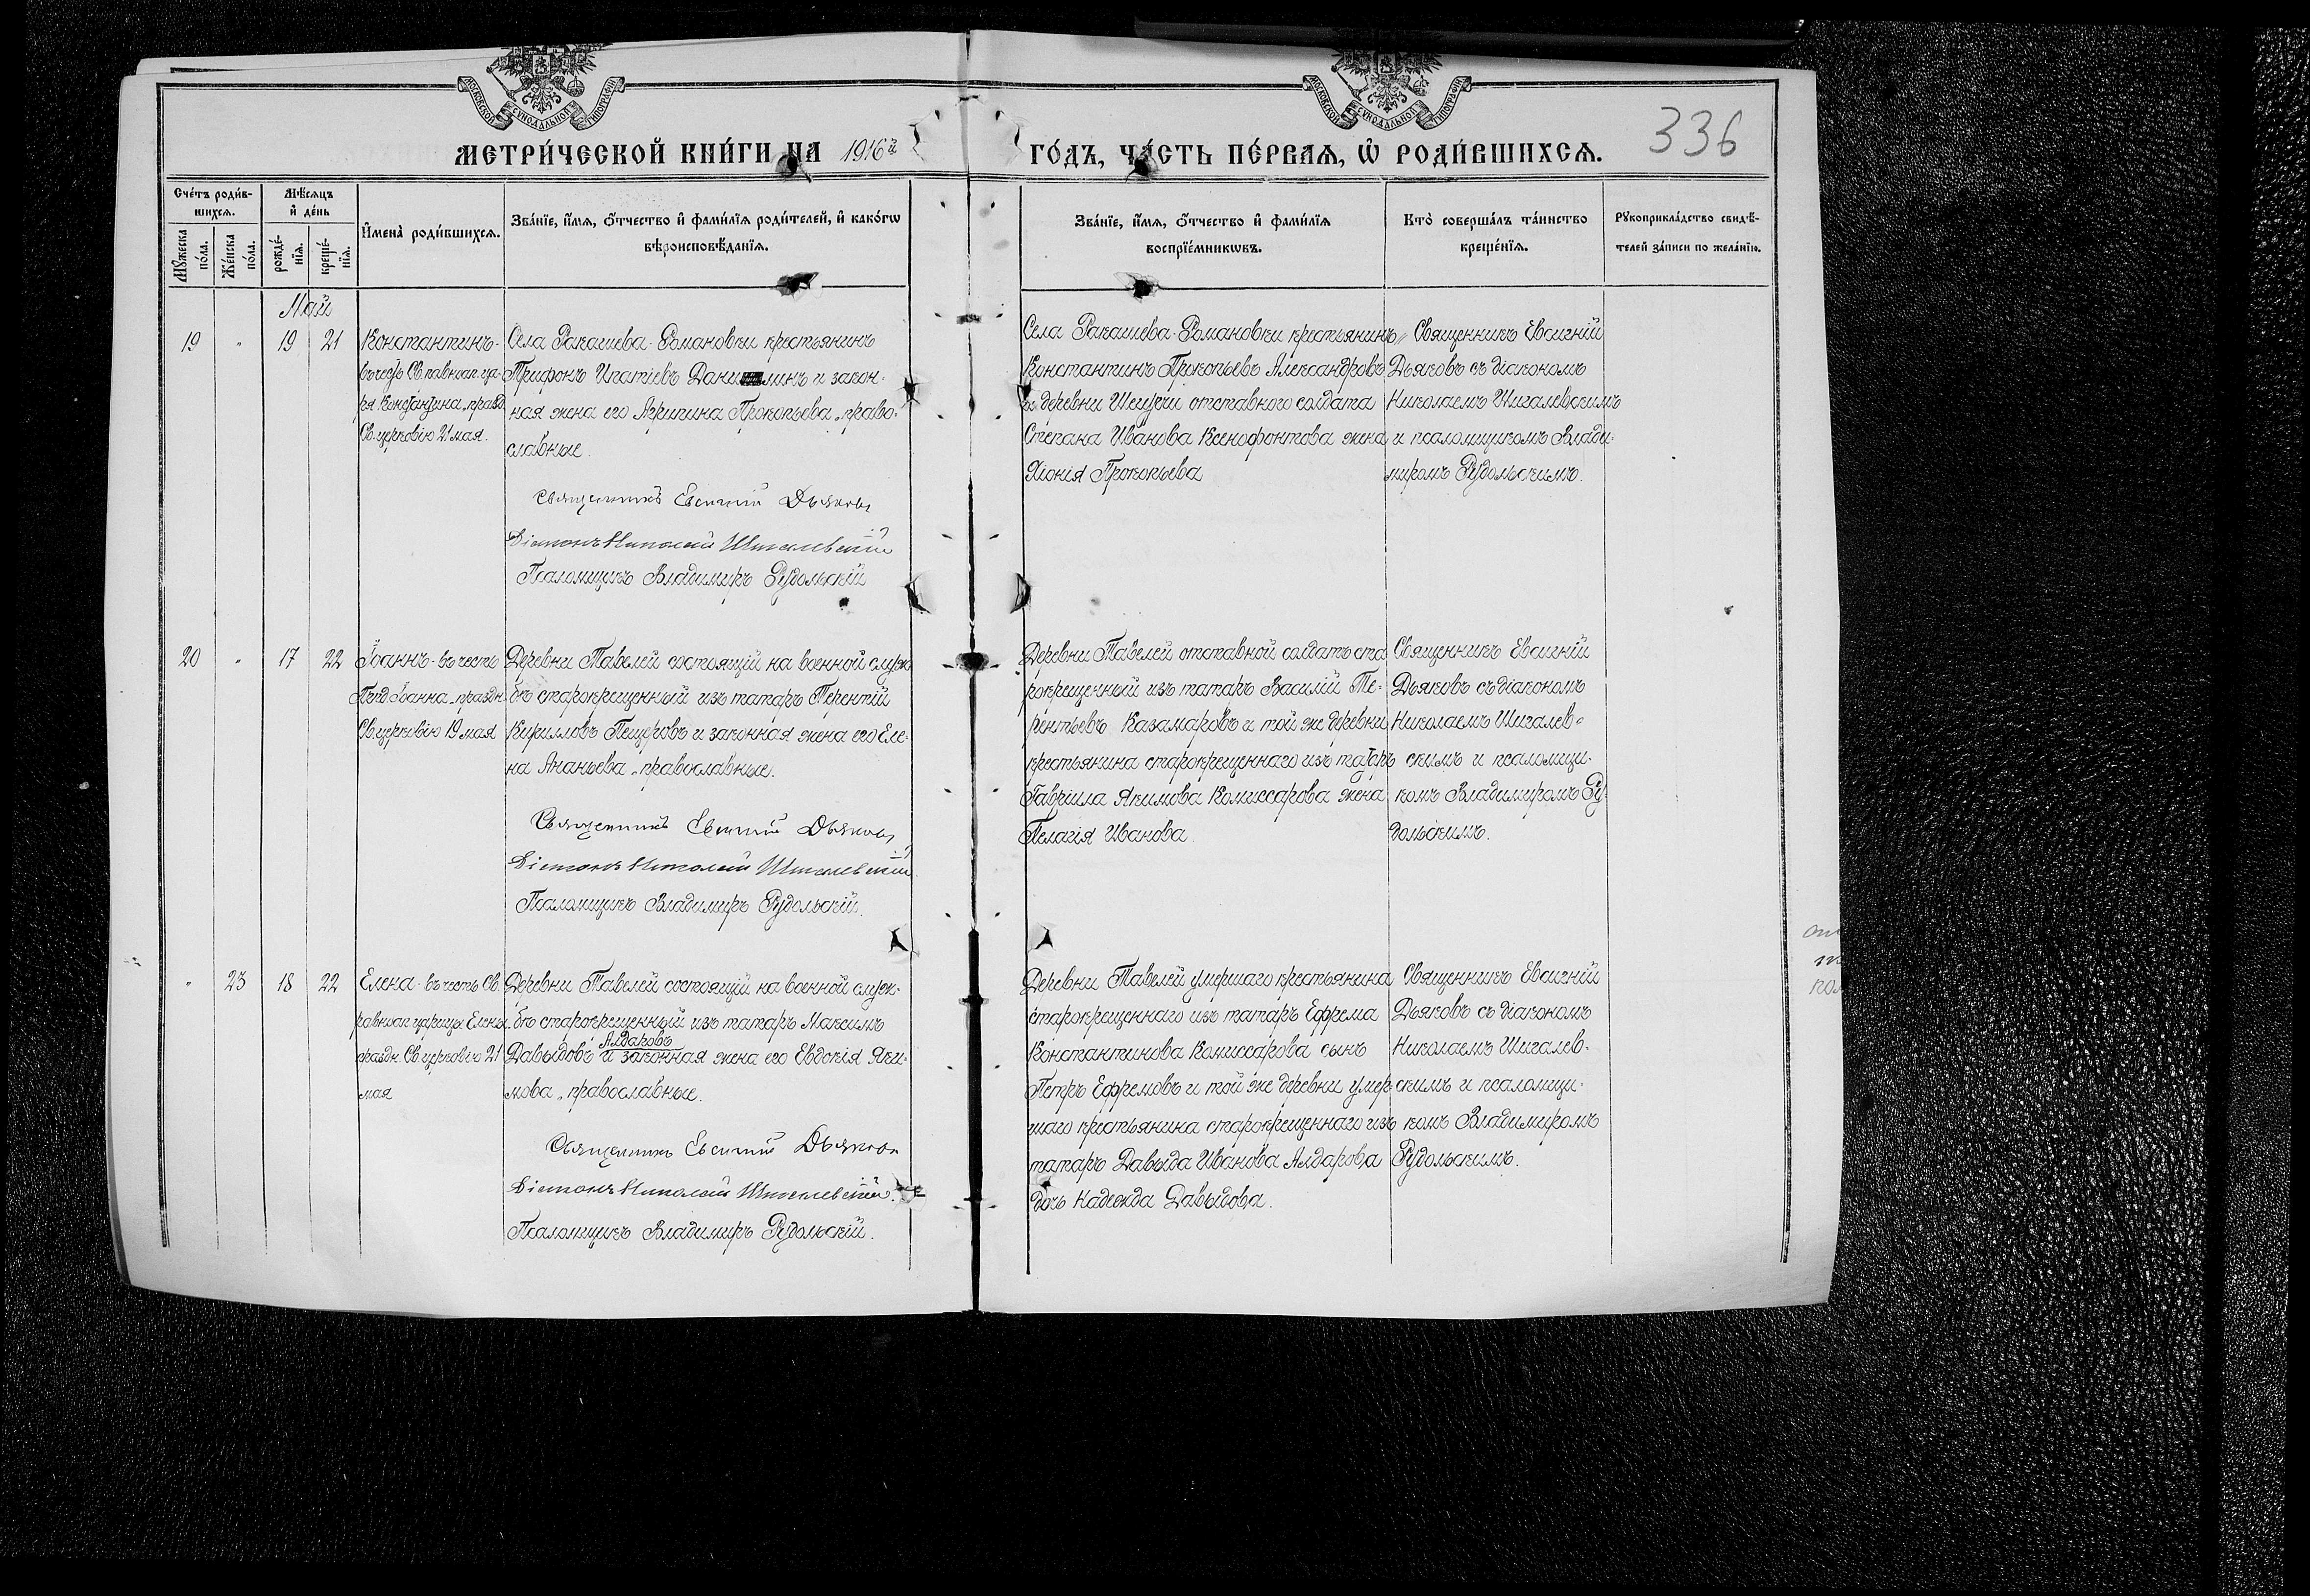 МОСКОВСКОЙ СѴНОДАЛЬНОЙ ТИПОГРАФІИ
МОСКОВСКОЙ СѴНОДАЛЬНОЙ ТИПОГРАФІИ
МЕТРИ́ЧЕСКОЙ КНИ́ГИ НА 1916й
ГО́ДЪ, ЧА́СТЬ ПЕ́РВАѦ, Ѡ҆ РОДИ́ВШИХСѦ.
336
Сче́тъ роди́в-
шихсѧ.
Мѣ́сѧцъ
и҆ де́нь
Мꙋ́жеска
по́ла.
Же́нска
по́ла.
рожде́-
нїѧ.
креще́-
нїѧ.
И҆мена̀ роди́вшихсѧ.
Зва́нїе, и҆́мѧ, ѻ҆́тчество и҆ фами́лїѧ роди́телей, и҆ како́гѡ
вѣроисповѣ́данїѧ.
Зва́нїе, и҆́мѧ, ѻ҆́тчество и҆ фами́лїѧ
воспрїе́мникѡвъ.
Кто̀ соверша́лъ та́инство
креще́нїѧ.
Рꙋкоприкла́дство свидѣ́-
телей за́писи по жела́нїю.
Май
19 " 19 21
Константинъ-
въ честь Св. равноап. ца-
ря Константина, празд.
Св. церковію 21 мая.
Села Ракашева-Романовки крестьянинъ
Трифонъ Игнатіевъ Данилинъ и закон-
ная жена его Агрипина Прокопьева, право-
славные.
Священникъ Евсигній Дьяковъ
Діаконъ Николай Шигалевскій
Псаломщикъ Владимиръ Рудольскій
Села Ракашева-Романовки крестьянинъ
Константинъ Прокопьевъ Александровъ
и деревни Шешучи отставного солдата
Степана Иванова Ксенофонтова жена
Хіонія Прокопьева
Священникъ Евсигній
Дьяковъ съ діакономъ
Николаемъ Шигалевскимъ
и псаломщикомъ Влади-
миромъ Рудольскимъ.
20 " 17 22
Іоаннъ-въ честь
Прд. Іоанна, праздн.
Св. церковію 19 мая
Деревни Тавелей состоящій на военной служ-
бѣ старокрещенный изъ татаръ Терентій
Кирилловъ Пещеровъ и законная жена его Еле-
на Ананьева, православные.
Священникъ Евсигній Дьяковъ
Діаконъ Николай Шигалевскій
Псаломщикъ Владимиръ Рудольскій.
Деревни Тавелей отставной солдатъ ста-
рокрещенный изъ татаръ Василій Те-
рентьевъ Казамаровъ и той же деревни
крестьянина старокрещеннаго изъ татаръ
Гавріила Якимова Комиссарова жена
Пелагія Иванова.
Священникъ Евсигній
Дьяковъ съ діакономъ
Николаемъ Шигалев-
скимъ и псаломщи-
комъ Владимиромъ Ру-
дольскимъ.
" 23 18 22
Елена-въ честь Св.
равноап. царицы Елены
праздн. Св. церковію 21
мая
Деревни Тавелей состоящій на военной служ-
бѣ старокрещенный изъ татаръ Максимъ
Алдаровъ
Давыдовъ и законная жена его Евдокія Яки-
мова, православные.
Священникъ Евсигній Дьяковъ
Діаконъ Николай Шигалевскій.
Псаломщикъ Владимиръ Рудольскій.
Деревни Тавелей умершаго крестьянина
старокрещеннаго изъ татаръ Ефрема
Константинова Комиссарова сынъ
Петръ Ефремовъ и той же деревни умер-
шаго крестьянина старокрещеннаго изъ
татаръ Давыда Иванова Алдарова
дочь Надежда Давыдова.
Священникъ Евсигній
Дьяковъ съ діакономъ
Николаемъ Шигалев-
скимъ и псаломщи-
комъ Владимиромъ
Рудольскимъ.